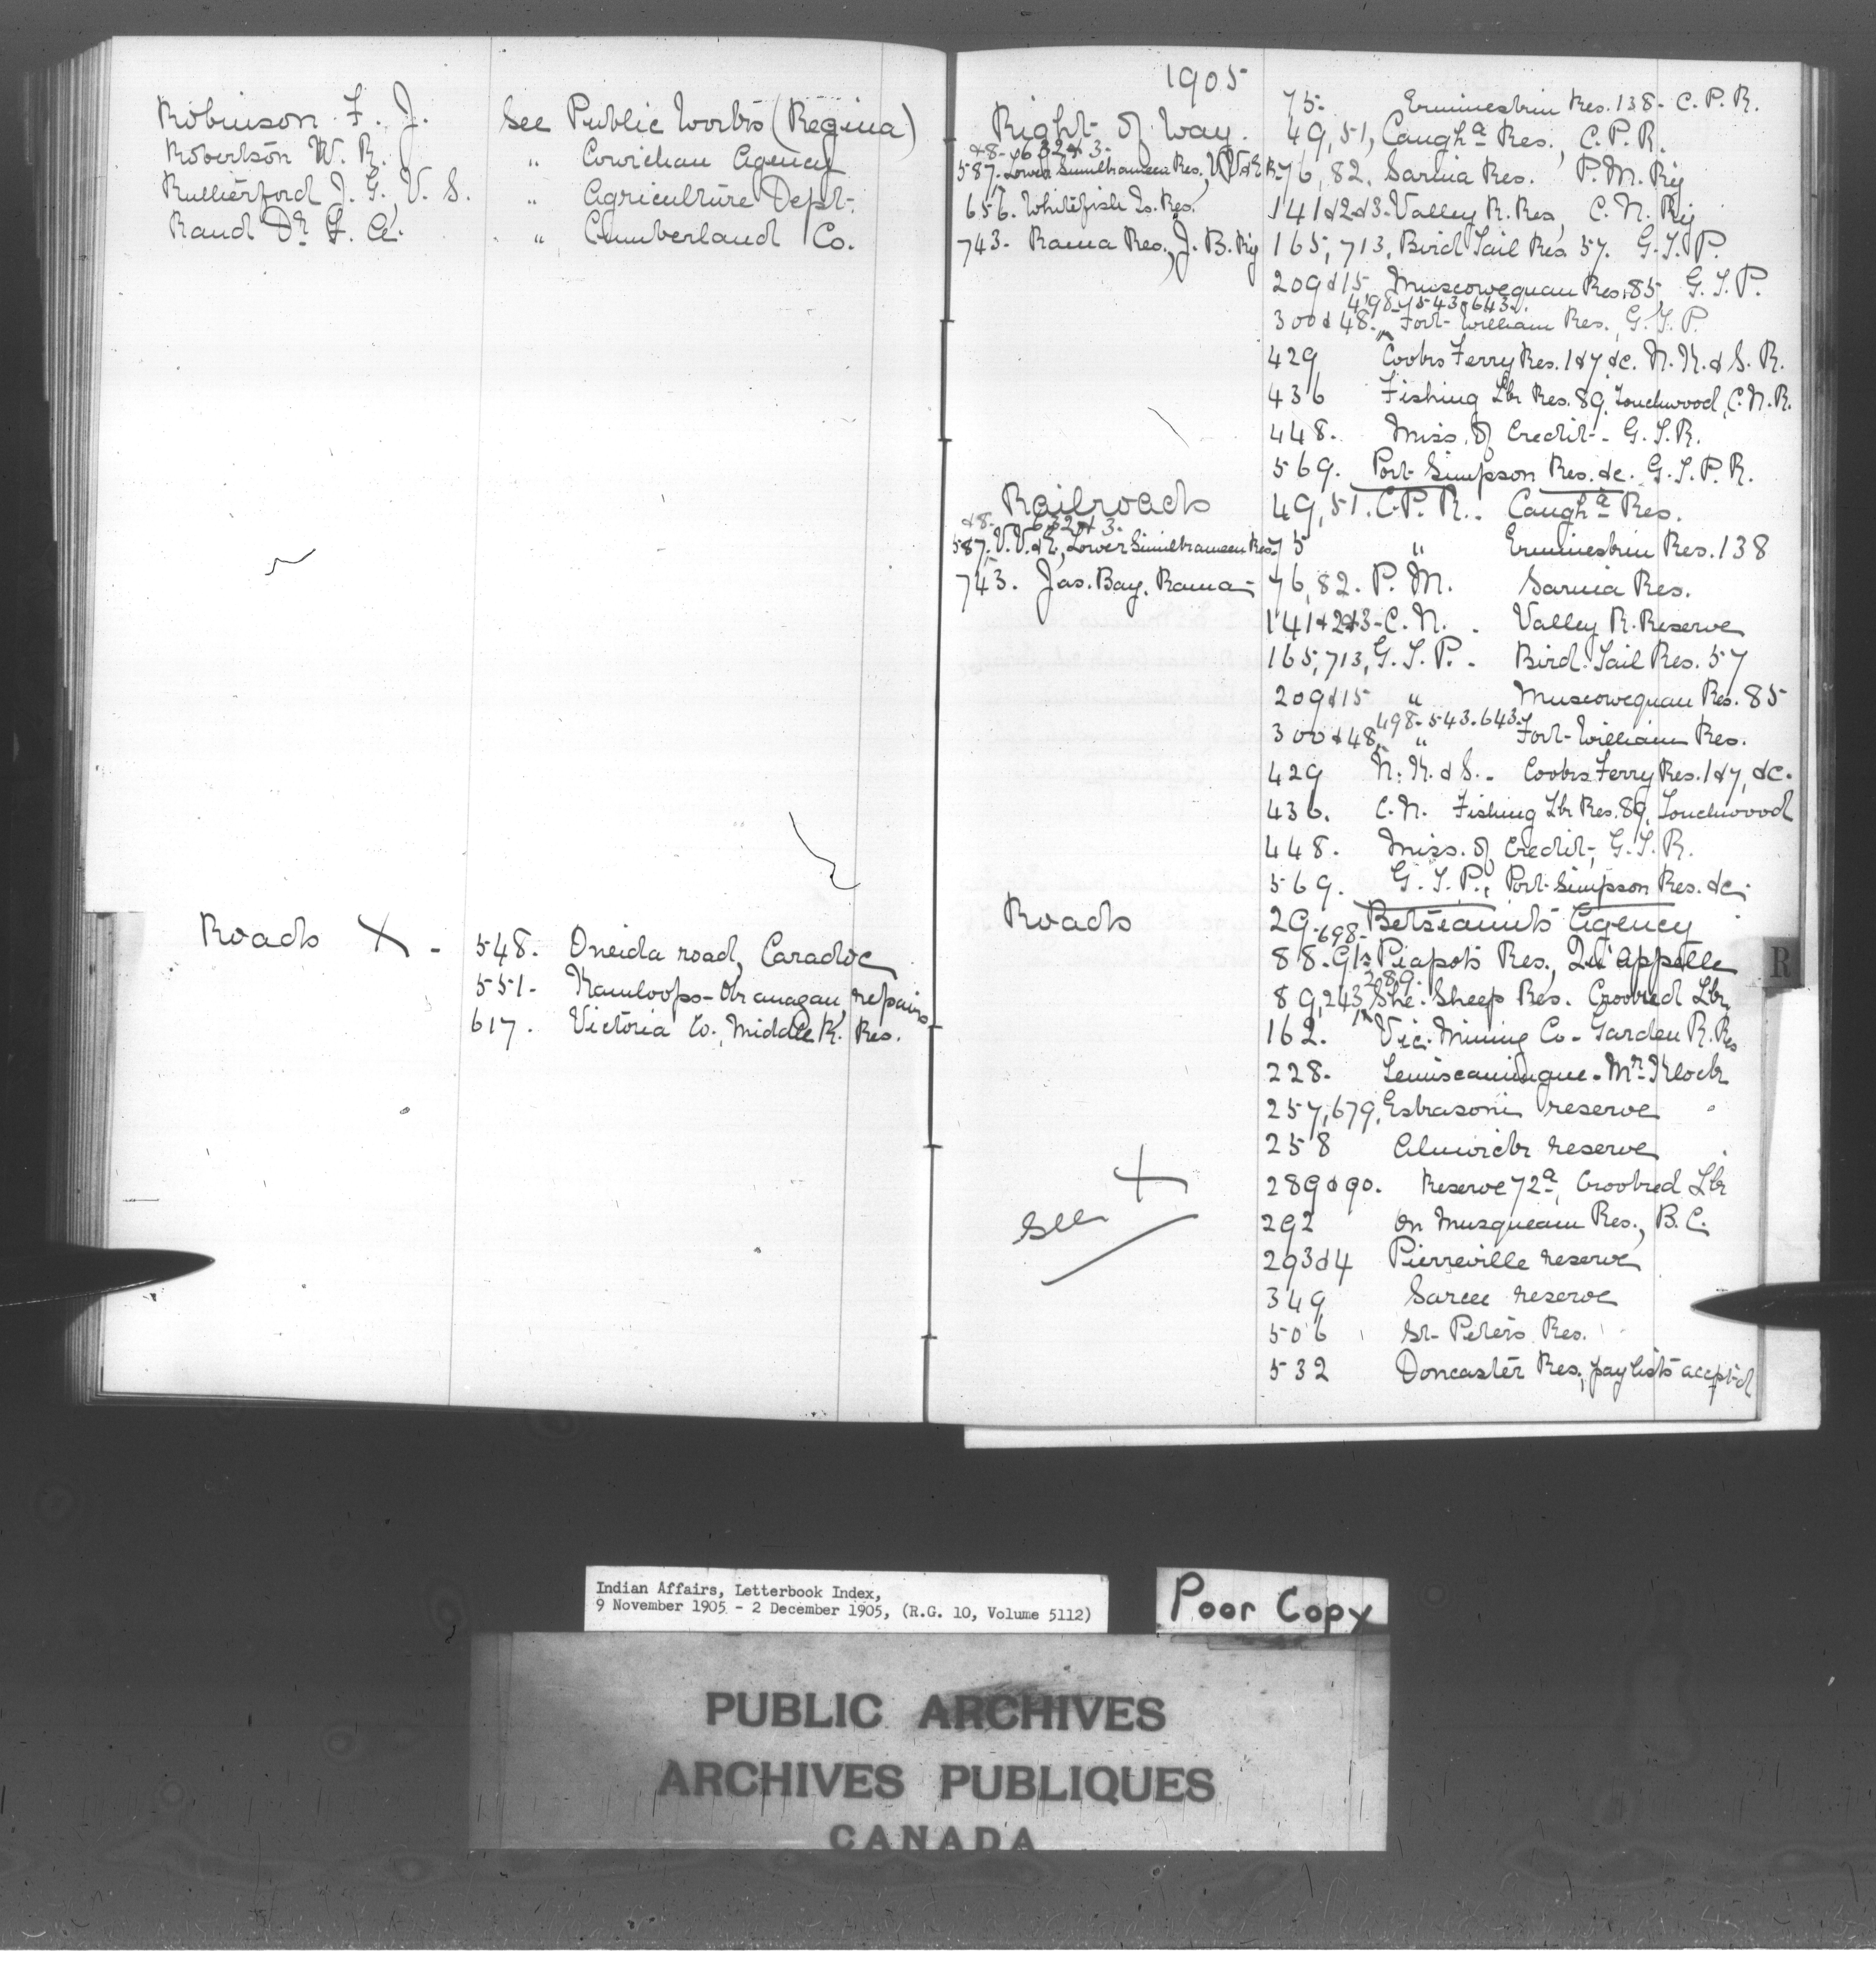 Robinson F. J. See Public Works (Regina)
Robertson W. R. " Cowichan Agency
Rutherford J. G. V. S. " Agriculture Dept.
Rand Dr F. A. " Cumberland Co.
Roads X - 548. Oneida road, Caradoc
551- Kamloops-Okanagan, repairs
617. Victoria Co., Middle R. Res.
1905
Right of Way.
&8- 632&3-
587. Lower Similkameen Res., V.V.&E. R.
656. Whitefish Is. Res.
743- Rama Res., J. B. Ry
75- Ermineskin Res. 138- C. P. R.
49, 51, Caugha Res., C. P. R.
76, 82. Sarnia Res. P. M. Ry
141&2&3- Valley R. Res, C. N. Ry
165, 713, Bird Tail Res 57. G. T. P.
209&15 Muscowequan Res. 85, G. T. P.
498-543-643-
300&48. Fort William Res., G. T. P.
429 Cooks Ferry Res. 1&7, &c. N. K. & S. R.
436 Fishing Lk Res. 89, Touchwood, C. N. R.
448. Miss. of Credit- G. T. R.
569. Port Simpson Res. &c. G. T. P. R.
Railroads
&8- 632&3-
587. V. V. & E, Lower Similkameen Res.
743. Jas. Bay, Rama
49, 51. C. P. R.. Caugha Res.
75 " Ermineskin Res. 138
76, 82. P. M. Sarnia Res.
141&2&3- C. N. . Valley R. Reserve
165, 713, G. T. P. - Bird Tail Res. 57
209&15 " Muscowequan Res. 85
498-543-643-
300&48, " Fort William Res.
429 N. K. & S. - Cooks Ferry Res. 1&7, &c.
436. C. N. Fishing Lk Res. 89, Touchwood
448. Miss. of Credit, G. T. R.
569. G. T. P., Port Simpson Res. &c
Roads
29- Betseamits Agency
698-
88- 91s Piapots Res., Qu'appelle
289-
89, 243, She. Sheep Res. Crooked Lk
162. Vic. Mining Co- Garden R. Res
228- Temiscamingue- Mr Klock
257, 679, Eskasoni reserve
258 Alnwick reserve
289&90. Reserve 72a, Crooked Lk
292 On Musqueam Res., B. C.
293&4 Pierreville reserve
349 Sarcee reserve
506 St- Peters Res.
532 Doncaster Res., pay lists accpt'd
X
see
R
Indian Affairs, Letterbook Index,
9 November 1905 - 2 December 1905, (R.G. 10, Volume 5112)
Poor Copy
PUBLIC ARCHIVES
ARCHIVES PUBLIQUES
CANADA